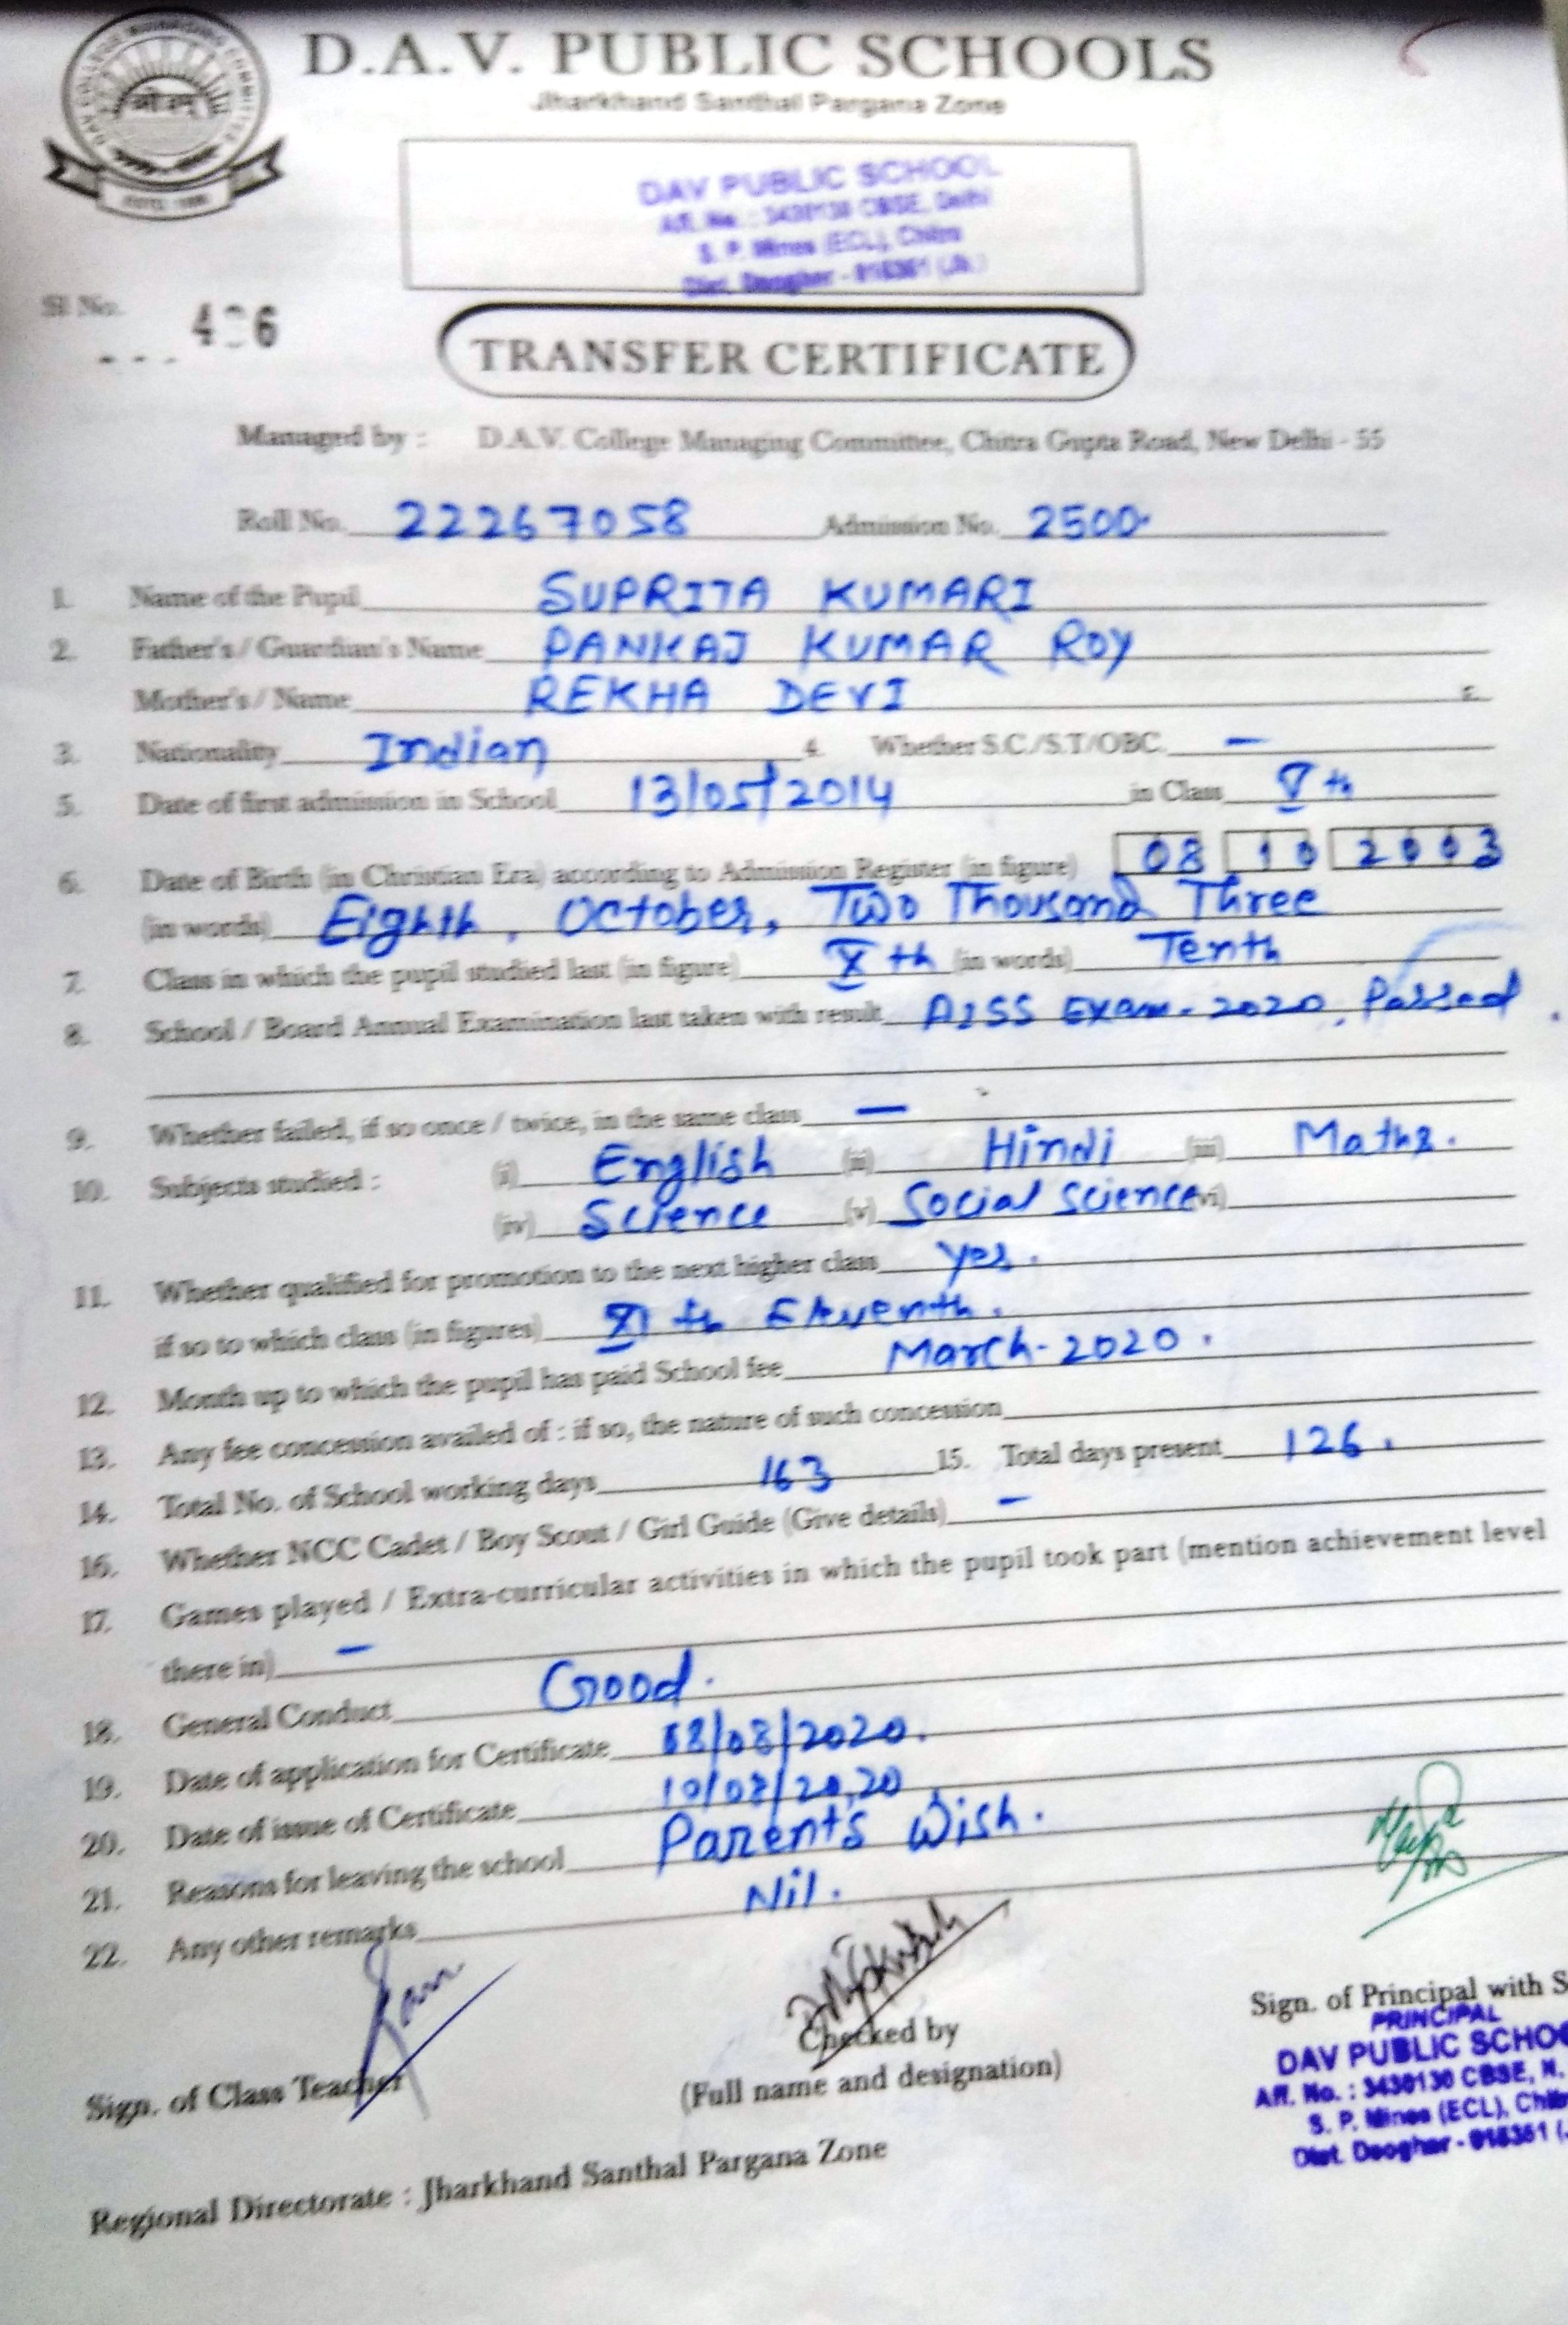 D.A.V. PUBLIC SCHOOLS
Jharkhand Santhal Pargana Zone
DAV PUBLIC SCHOOL
Aff. No. : 3430130 CBSE, Delhi
S. P. Mines (ECL), Chitra
Dist. Deoghar - 815351 (Jh.)
Sl No.
TRANSFER CERTIFICATE
Managed by : D.A.V. College Managing Committee, Chitra Gupta Road, New Delhi - 55
Roll No. 22267058 Admission No. 2500
1. Name of the Pupil SUPRITA KUMARI
2. Father's / Guardian's Name PANKAJ KUMAR ROY
Mother's / Name REKHA DEVI
3. Nationality Indian 4. Whether S.C./S.T/OBC. —
5. Date of first admission in School 13/05/2014 in Class Vth
6. Date of Birth (in Christian Era) according to Admission Register (in figure) 08 10 2003
(in words) Eighth, October, Two Thousand Three
7. Class in which the pupil studied last (in figure) Xth (in words) Tenth
8. School / Board Annual Examination last taken with result AISS Exam-2020, Passed
9. Whether failed, if so once / twice, in the same class —
10. Subjects studied : (i) English (ii) Hindi (iii) Maths.
(iv) Science (v) Social Science (vi)
11. Whether qualified for promotion to the next higher class Yes.
if so to which class (in figures) XIth Eleventh.
12. Month up to which the pupil has paid School fee March-2020.
13. Any fee concession availed of : if so, the nature of such concession
14. Total No. of School working days 163 15. Total days present 126.
16. Whether NCC Cadet / Boy Scout / Girl Guide (Give details) —
17. Games played / Extra-curricular activities in which the pupil took part (mention achievement level
there in) —
18. General Conduct Good.
19. Date of application for Certificate 08/08/2020.
20. Date of issue of Certificate 10/08/2020
21. Reasons for leaving the school Parent's Wish.
22. Any other remarks Nil.
Sign. of Class Teacher
Checked by
(Full name and designation)
Sign. of Principal with S
PRINCIPAL
DAV PUBLIC SCHOO
Aff. No. : 3430130 CBSE, N.
S. P. Mines (ECL), Chit
Dist. Deoghar - 815351 (
Regional Directorate : Jharkhand Santhal Pargana Zone